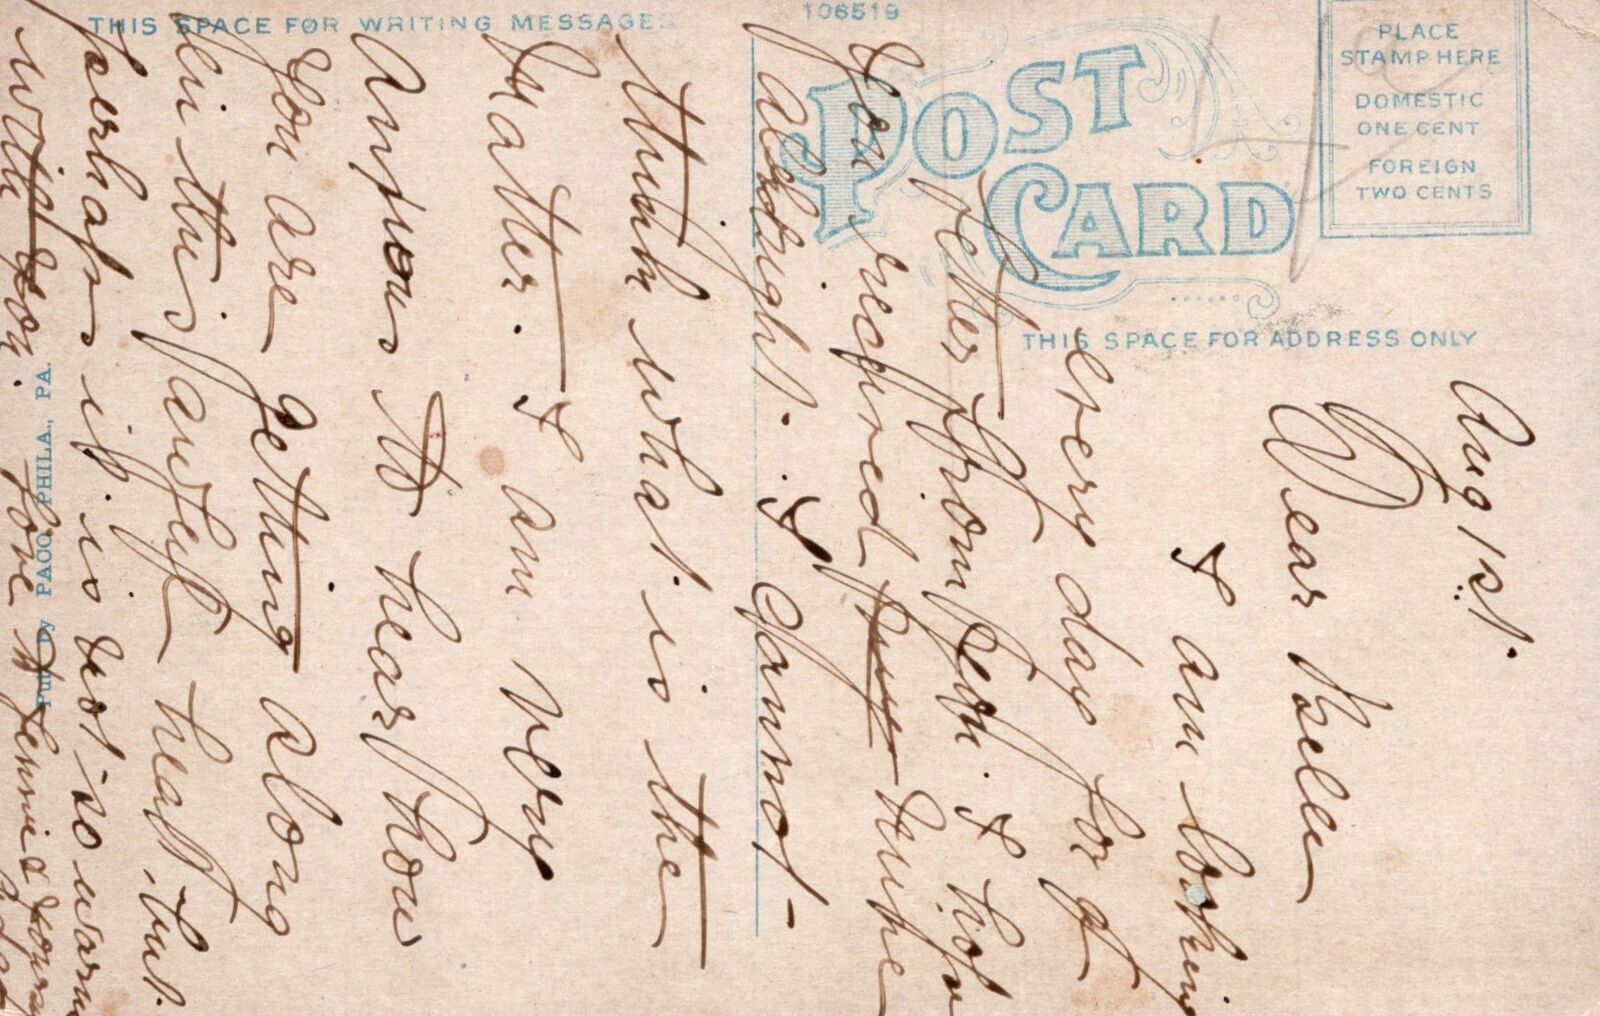 THIS SPACE FOR WRITING MESSAGES
106519
POST
CARD
PLACE
STAMP HERE
DOMESTIC
ONE CENT
FOREIGN
TWO CENTS
THIS SPACE FOR ADDRESS ONLY
Pub by PACO, PHILA., PA.
Aug 1st.
Dear Belle
I am looking
every day for a
letter from you. I hope
you recieved
alright. I cannot
think what is the
matter. I am very
anxious to hear how
you are getting along
in this awful heat, but.
perhaps it is not so warm
with you. love to